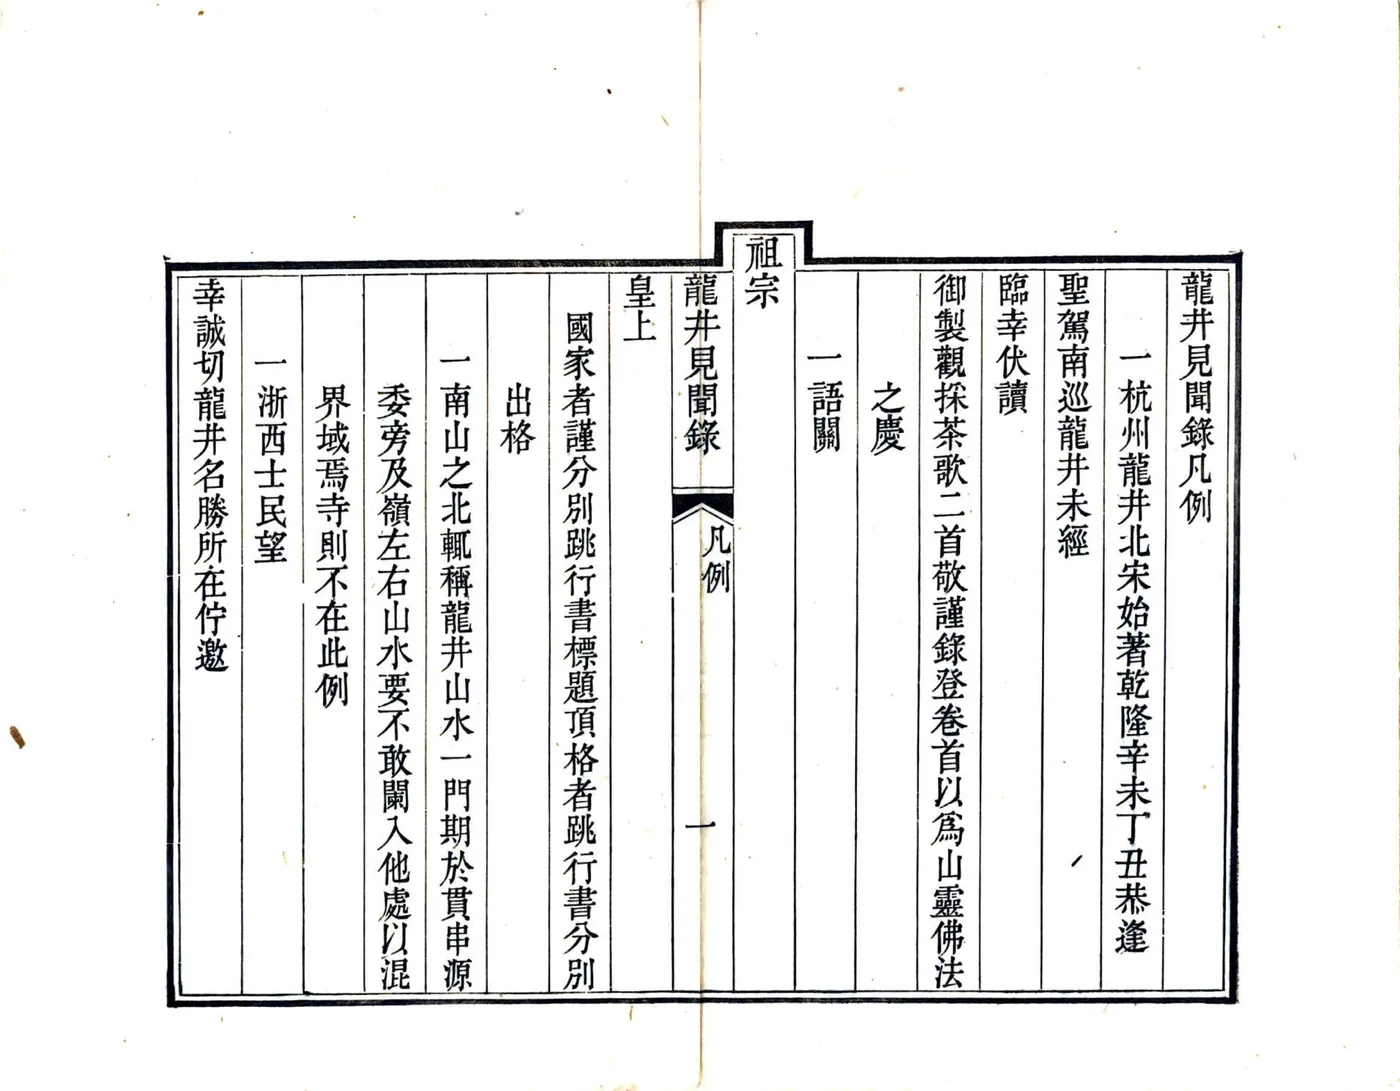 龍井見聞錄凡例
一杭州龍井北宋始著乾隆辛未丁丑恭逢
聖駕南巡龍井未經
臨幸伏讀
御製觀採茶歌二首敬謹錄登卷首以爲山靈佛法
之慶
一語關
祖宗
龍井見聞錄
凡例
一
皇上
國家者謹分別跳行書標題頂格者跳行書分別
出格
一南山之北輒稱龍井山水一門期於貫串源
委旁及嶺左右山水要不敢闌入他處以混
界域焉寺則不在此例
一浙西士民望
幸誠切龍井名勝所在佇邀